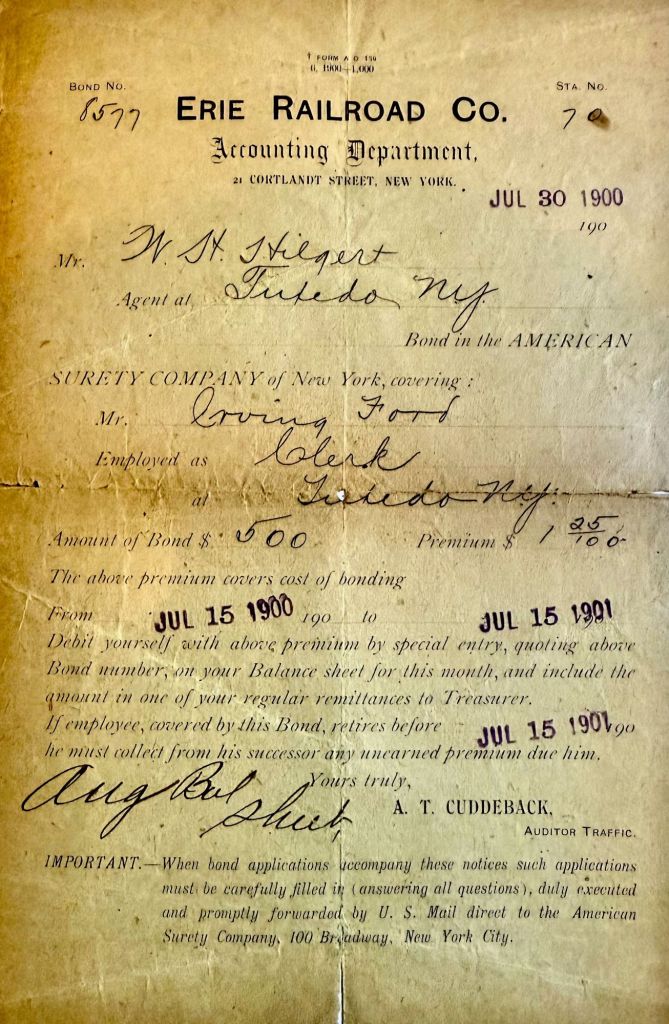 † FORM A D 150
6, 1900—1,000
BOND NO.
8577
STA. NO.
70
ERIE RAILROAD CO.
Accounting Department,
21 CORTLANDT STREET, NEW YORK.
JUL 30 1900
190
Mr. W. H. Hilgert
Agent at Tuxedo N.Y.
Bond in the AMERICAN
SURETY COMPANY of New York, covering:
Mr. Irving Ford
Employed as Clerk
at Tuxedo N.Y.
Amount of Bond $ 500 Premium $ 1 25/100
The above premium covers cost of bonding
From JUL 15 1900 190 to JUL 15 1901
Debit yourself with above premium by special entry, quoting above
Bond number, on your Balance sheet for this month, and include the
amount in one of your regular remittances to Treasurer.
If employee, covered by this Bond, retires before JUL 15 1901 190
he must collect from his successor any unearned premium due him.
Yours truly,
Aug Bal
Sheet,
A. T. CUDDEBACK,
AUDITOR TRAFFIC.
IMPORTANT.—When bond applications accompany these notices such applications
must be carefully filled in (answering all questions), duly executed
and promptly forwarded by U. S. Mail direct to the American
Surety Company, 100 Broadway, New York City.